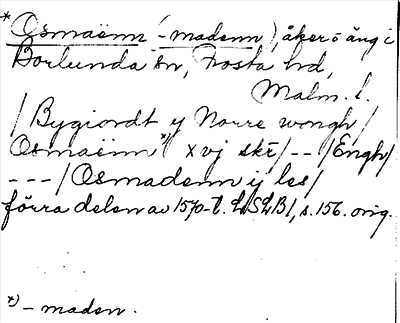 * Osmaënn (-madenn), åker o äng i
Borlunda sn, Frosta hd,
Malm. l.
/ Bygiordt y Norre wongh /
Osmaënn *) xvj skr / -- / Engh /
--- / Osmadenn ij les /
förra delen av 1570-t. LSLB1, s. 156. orig.
*) -maden.